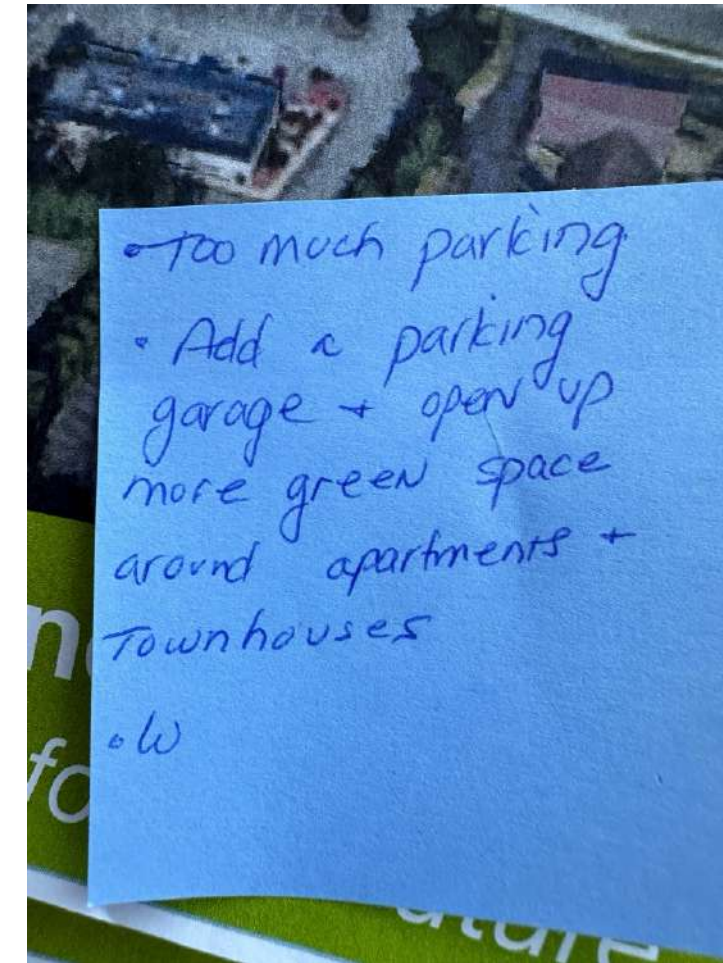 • Too much parking
• Add a parking
garage + open up
more green space
around apartments +
Townhouses
• W